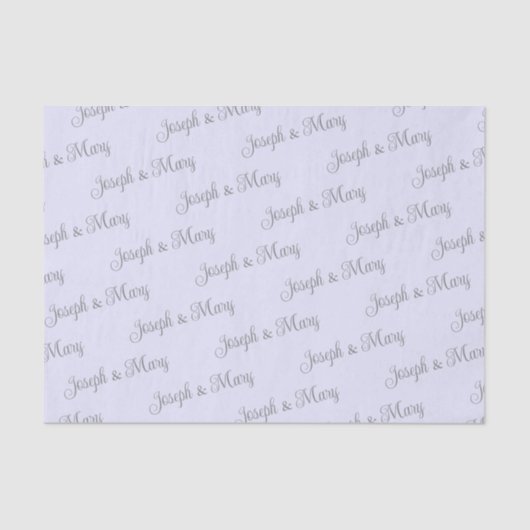 Joseph &
Joseph & Mary
Joseph & Mary
Joseph & Mary
Joseph & Mary
Joseph & Mary
Joseph & Mary
Joseph & Mary
Joseph & Mary
Joseph & Mary
Joseph & Mary
Joseph & Mary
Joseph & Mary
Joseph & Mary
Joseph & Mary
Joseph & Mary
Joseph & Mary
Joseph & Mary
Joseph & Mary
Joseph & Mary